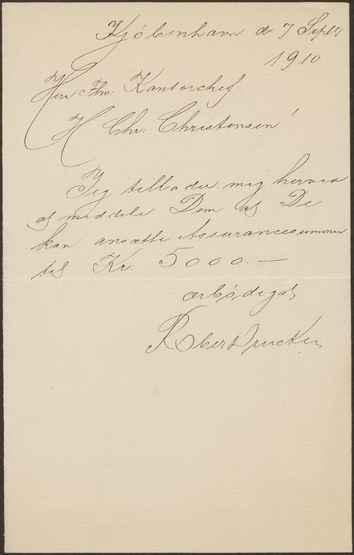 Kjöbenhavn d 7 Septb
1910
Herr Fhv. Kontorchef
H. Chr. Christensen!
Jeg tillader mig herved
at meddele Dem at De
kan ansætte Assurancesummen
til Kr. 5000.—
ærbødigst
Robert Drucker